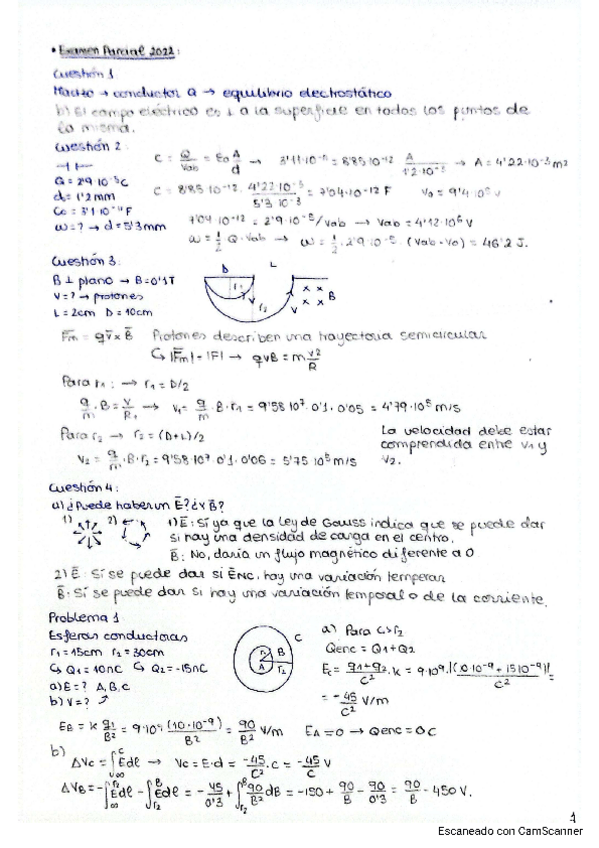 • Examen Parcial 2022:
Cuestión 1
Macizo → conductor a → equilibrio electrostático
b) El campo eléctrico es ⊥ a la superficie en todos los puntos de
la misma.
Cuestión 2:
⊣⊢
Q = 2'9·10⁻⁵C
d₁ = 1'2mm
C₀ = 3'1·10⁻¹¹F
ω = ? → d = 5'3mm
C = Q/Vab = ε₀ A/d → 3'11·10⁻¹¹ = 8'85·10⁻¹² A/1'2·10⁻³ → A = 4'22·10⁻³m²
C = 8'85·10⁻¹² · 4'22·10⁻³/5'3·10⁻³ = 7'04·10⁻¹² F V₀ = 9'4·10⁵ V
7'04·10⁻¹² = 2'9·10⁻⁵/Vab → Vab = 4'12·10⁶ V
ω = 1/2 Q·Vab → ω = 1/2 · 2'9·10⁻⁵ · (Vab - V₀) = 46'2 J.
Cuestión 3:
B ⊥ plano → B = 0'1T
V = ? → protones
L = 2cm D = 10cm
D L
r₁ r₂ V
x x
x x B
Fm = qv̄ x B̄ Protones describen una trayectoria semicircular
↳ |Fm| = |F| → qvB = m v²/R
Para r₁: → r₁ = D/2
q/m · B = V/R₁ → V₁ = q/m · B · r₁ = 9'58·10⁷·0'1·0'05 = 4'79·10⁵ m/s
Para r₂ → r₂ = (D+L)/2
V₂ = q/m · B · r₂ = 9'58·10⁷·0'1·0'06 = 5'75·10⁵ m/s
La velocidad debe estar
comprendida entre V₁ y
V₂.
Cuestión 4:
a) ¿Puede haber un Ē? ¿y B̄?
1) 2)
1) Ē: Sí ya que la ley de Gauss indica que se puede dar
si hay una densidad de carga en el centro.
B̄: No, daría un flujo magnético diferente a 0
2) Ē: Sí se puede dar si ĒNC, hay una variación temporar
B̄: Sí se puede dar si hay una variación temporal o de la corriente.
Problema 1
Esferas conductoras
r₁ = 15cm r₂ = 30cm
↳ Q₁ = 10nC ↳ Q₂ = -15nC
a) E = ? A, B, C
b) V = ?
r₁ B C
A r₂
a) Para C > r₂
Qenc = Q₁ + Q₂
Ec = q₁+q₂/C² · K = 9·10⁹ · |(10·10⁻⁹ + 15·10⁻⁹)|/C² =
= -45/C² V/m
EB = K q₁/B² = 9·10⁹ (10·10⁻⁹)/B² = 90/B² V/m EA = 0 → Qenc = 0C
b)
ΔVc = ∫Edl → Vc = E·d = -45/C² · C = -45/C V
ΔVB = -∫Edl - ∫Edl = -45/0'3 + ∫90/B² dB = -150 + 90/B - 90/0'3 = 90/B - 450 V.
1
Escaneado con CamScanner